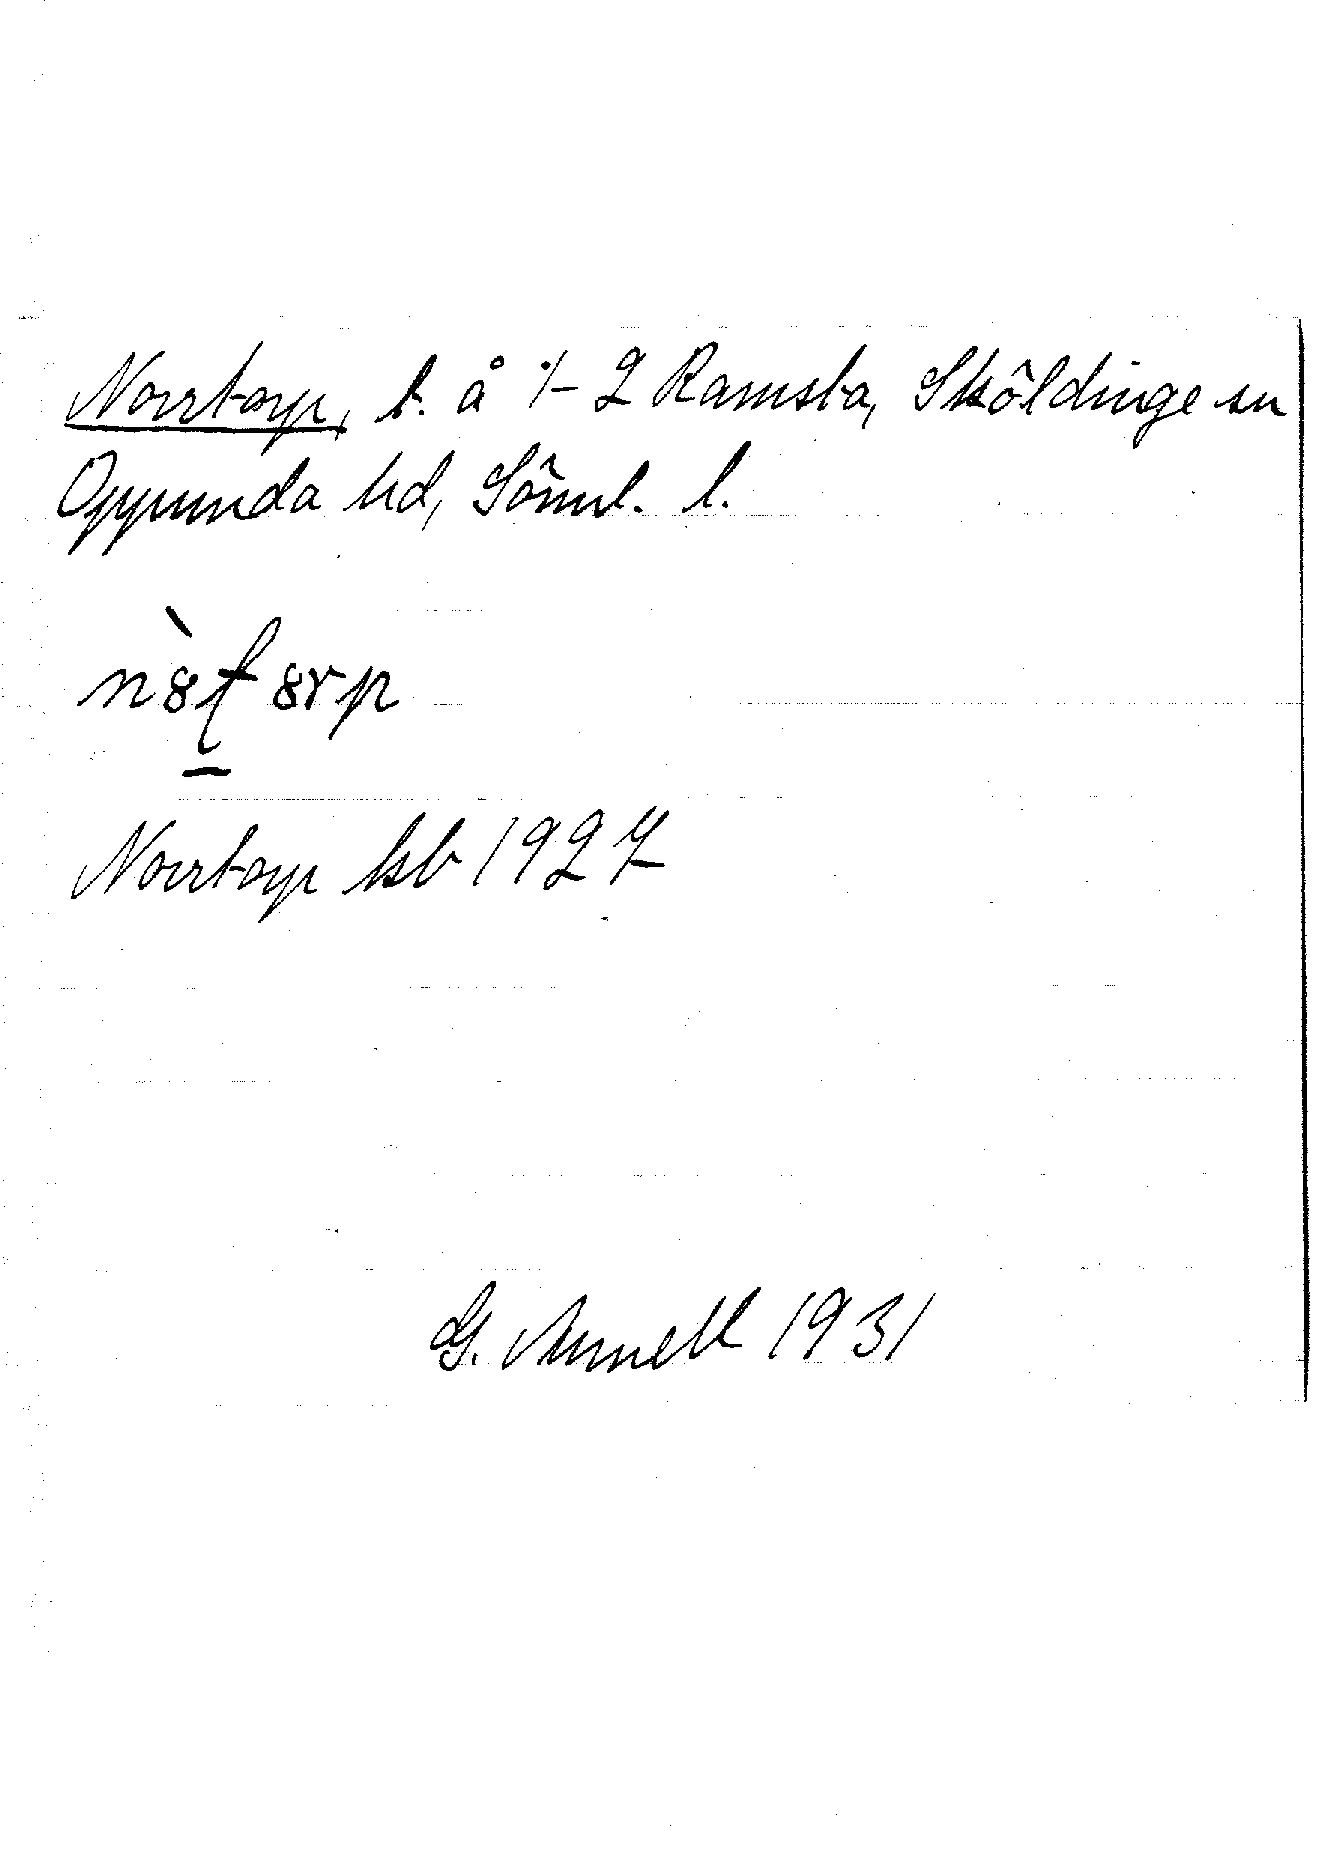 Norrtorp, t. å 1-2 Ramsta, Sköldinge sn
Oppunda hd, Söml. l.
Norrtorp kb 1927
G. Arnell 1931